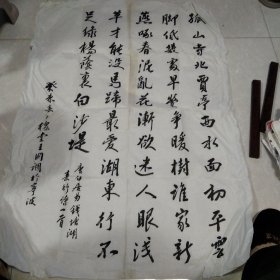 孤山寺北賈亭西水面初平雲
脚低幾處早鶯爭暖樹誰家新
燕啄春泥亂花漸欲迷人眼淺
草才能没馬蹄最愛湖東行不
足綠楊蔭裏白沙堤
唐白居易錢塘湖
春行詩一首